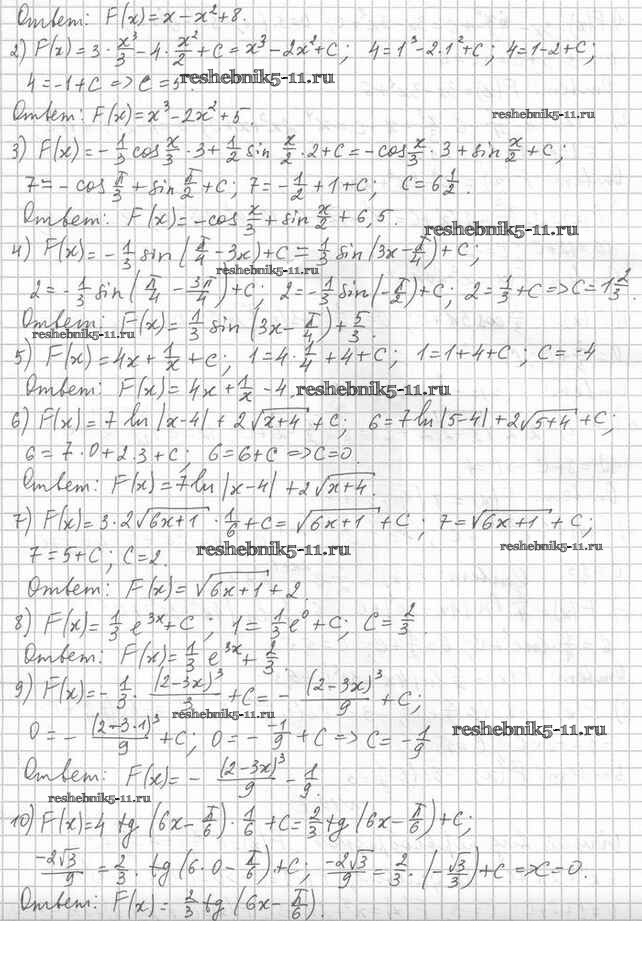 Ответ: F(x)=x-x²+8.
2) F(x)=3·x³/3-4·x²/2+C=x³-2x²+C; 4=1³-2·1²+C; 4=1-2+C;
4=-1+C=>C=5.
reshebnik5-11.ru
Ответ: F(x)=x³-2x²+5.
reshebnik5-11.ru
3) F(x)=-1/3 cos x/3·3+1/2 sin x/2·2+C=-cos x/3·3+sin x/2+C;
7=-cos π/3+sin π/2+C; 7=-1/2+1+C; C=6 1/2.
Ответ: F(x)=-cos x/3+sin x/2+6,5.
reshebnik5-11.ru
4) F(x)=-1/3 sin(π/4-3x)+C=1/3 sin(3x-π/4)+C;
reshebnik5-11.ru
2=-1/3 sin(π/4-3π/4)+C; 2=-1/3 sin(-π/2)+C; 2=1/3+C=>C=1 2/3.
Ответ: F(x)=1/3 sin(3x-π/4)+5/3
reshebnik5-11.ru
5) F(x)=4x+1/x+C; 1=4·1/4+4+C; 1=1+4+C; C=-4
Ответ: F(x)=4x+1/x-4.
reshebnik5-11.ru
6) F(x)=7 ln|x-4|+2√(x+4)+C; 6=7 ln|5-4|+2√(5+4)+C;
6=7·0+2·3+C; 6=6+C=>C=0.
Ответ: F(x)=7 ln|x-4|+2√(x+4).
7) F(x)=3·2√(6x+1)·1/6+C=√(6x+1)+C; 7=√(6x+1)+C;
7=5+C; C=2.
reshebnik5-11.ru
reshebnik5-11.ru
Ответ: F(x)=√(6x+1)+2.
8) F(x)=1/3 e³ˣ+C; 1=1/3 e⁰+C; C=2/3.
Ответ: F(x)=1/3 e³ˣ+2/3.
9) F(x)=-1/3·(2-3x)³/3+C=-(2-3x)³/9+C;
reshebnik5-11.ru
0=-(2-3·1)³/9+C; 0=-(-1)/9+C=>C=-1/9
reshebnik5-11.ru
Ответ: F(x)=-(2-3x)³/9-1/9.
reshebnik5-11.ru
10) F(x)=4 tg(6x-π/6)·1/6+C=2/3 tg(6x-π/6)+C;
-2√3/9=2/3·tg(6·0-π/6)+C; -2√3/9=2/3·(-√3/3)+C=>C=0.
Ответ: F(x)=2/3 tg(6x-π/6).